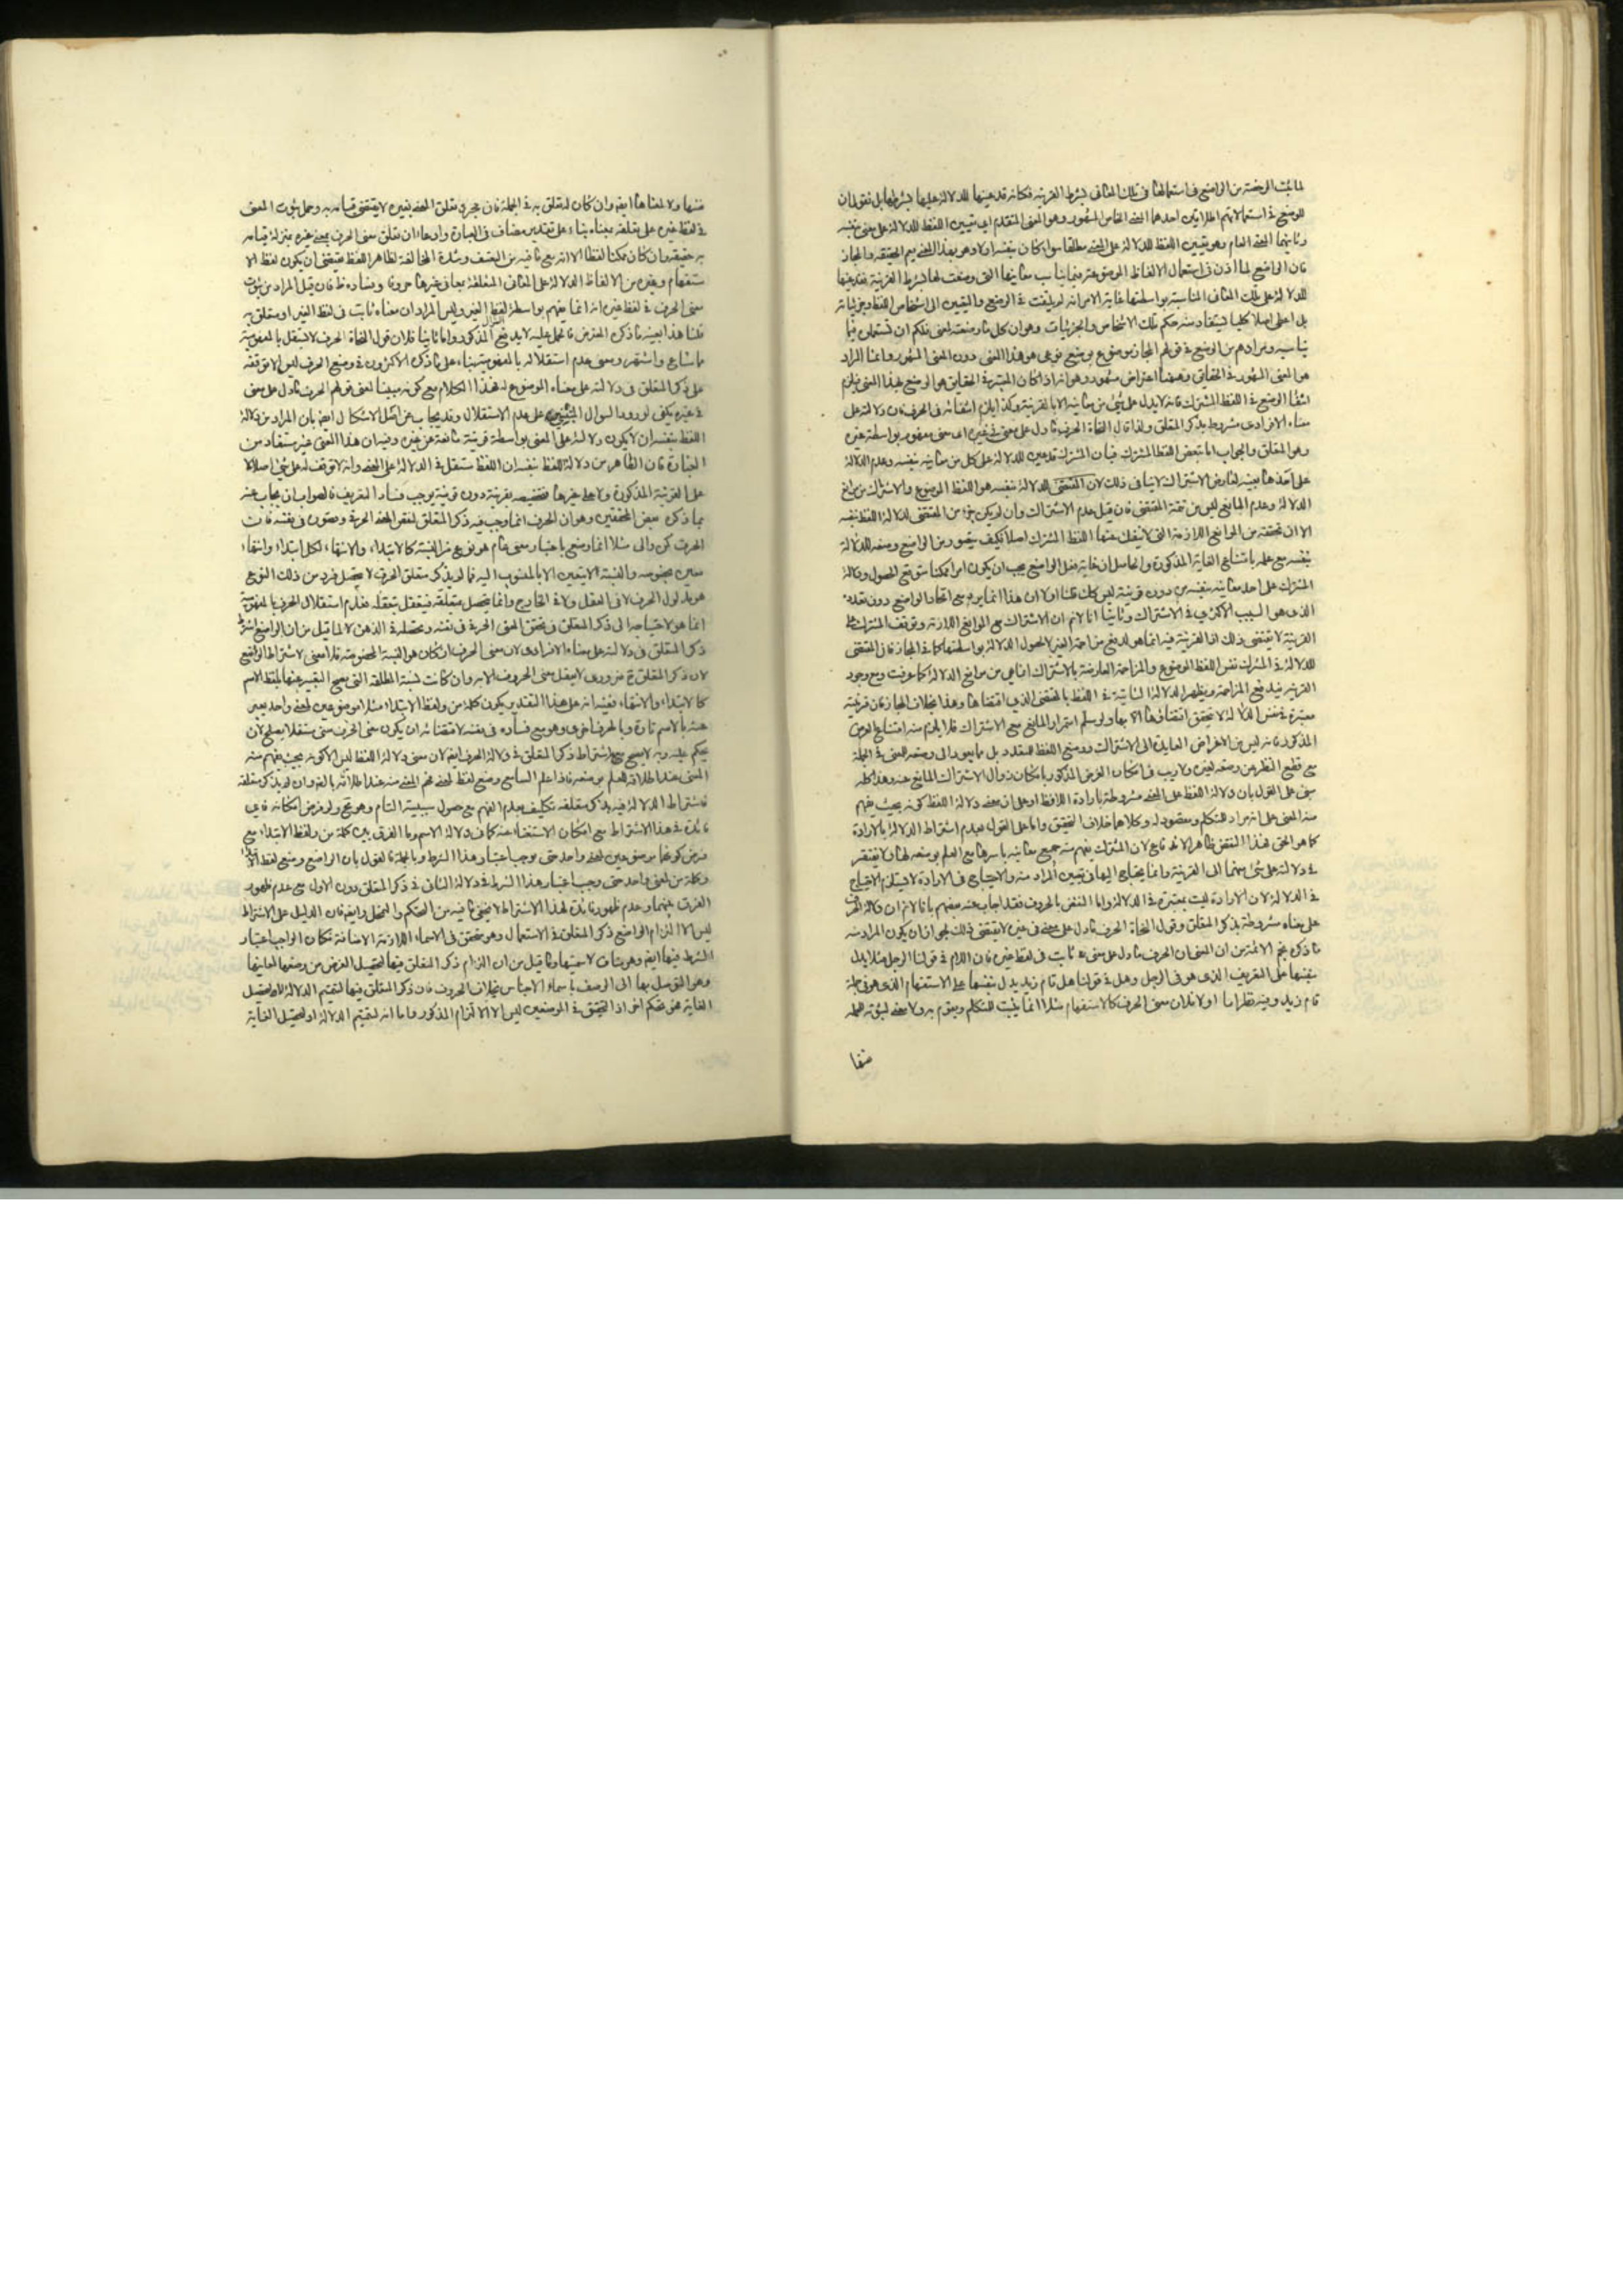 لما ثبت الرخصة من الواضع فى استعمالها فى تلك المعانى بشرط القرينة فكانه قد عينها للدلالة عليها بشرطها بل نقول ان
للوضع فى استعمالاتهم اطلاقين احدهما المعنى الخاص المشهور وهو المعنى المتقدم اى تعيين اللفظ للدلالة على معنى بنفسه
وثانيهما المعنى العام وهو تعيين اللفظ للدلالة على المعنى مطلقا سواء كان بنفسه او لا وهو بهذا المعنى يعم الحقيقة والمجاز
فان الواضع لما اذن فى استعمال الالفاظ الموضوعة فيما يناسب معانيها التى وضعت لها بشرط القرينة فقد عينها
للدلالة على تلك المعانى المناسبة بواسطتها غاية الامر انه لم يلتفت فى الوضع والتعيين الى اشخاص اللفظ وجزئياته
بل اعطى اصلا كليا يستفاد منه حكم تلك الاشخاص والجزئيات وهو ان كل ما وضعته لمعنى فلكم ان تستعملوه فيما
يناسبه ومرادهم من الوضع فى قولهم المجاز موضوع بوضع نوعى هو هذا المعنى دون المعنى المشهور وانما المراد
هو المعنى المشهور فى الحقايق وههنا اعتراض مشهور وهو انه اذا كان المعتبر فى الحقايق هو الوضع بهذا المعنى فيلزم
انتفاء الوضع فى اللفظ المشترك فانه لا يدل على شئ من معانيه الا بالقرينة وكذا يلزم انتفائه فى الحرف فان دلالته على
معناه الافرادى مشروط بذكر المتعلق ولذا قال النحاة الحرف ما دل على معنى فى غيره اى معنى مفهوم بواسطة غيره
وهو المتعلق والجواب اما بنقض اللفظ المشترك فبان المشترك قد عين للدلالة على كل من معانيه بنفسه وعدم الدلالة
على احدهما بعينه لتعارض الاشتراك لا ينافى ذلك لان المقتضى للدلالة بنفسه هو اللفظ الموضوع والاشتراك من موانع
الدلالة وعدم المانع ليس من تتمة المقتضى فان قيل عدم الاشتراك وان لم يكن جزءا من المقتضى لدلالة اللفظ بنفسه
الا ان تحققه من الموانع اللازمة التى لا ينفك عنها اللفظ المشترك اصلا فكيف يتصور من الواضع وضعه للدلالة
بنفسه مع علمه بامتناع الغاية المذكورة والحاصل ان غاية فعل الواضع يجب ان يكون امرا ممكنا متوقع الحصول ودلالة
المشترك على احد معانيه بنفسه من دون قرينة ليس كك قلنا اولا ان هذا انما يرد مع اتحاد الواضع دون تعدده
الذى هو السبب الاكثرى فى الاشتراك وثانيا انا لا نم ان الاشتراك من الموانع اللازمة وتوقف المشترك على
القرينة لا يقتضى ذلك اذ القرينة فيه انما هو لدفع مزاحمة الغير لا لحصول الدلالة بواسطتها كما فى المجاز فان المقتضى
للدلالة فى المشترك نفس اللفظ الموضوع والمزاحمة العارضة بالاشتراك انما هى من موانع الدلالة كما عرفت ومع وجود
القرينة يندفع المزاحمة ويظهر الدلالة الثابتة فى اللفظ بالمقتضى الذى اقتضاها وهذا بخلاف المجاز فان قرينته
معتبرة فى نفس الدلالة لا يتحقق اقتضاؤها الا بها ولو سلم استمرار المانع مع الاشتراك فلا يلزم منه امتناع الغرض
المذكور فانه ليس من الاغراض العايدة الى الاشتراك ووضع اللفظ للمتعدد بل ما يعود الى وضعه للمعنى فى الجملة
مع قطع النظر عن وضعه لغيره ولا ريب فى امكان الغرض المذكور بامكان زوال الاشتراك المانع عنه وهذا كله
مبنى على القول بان دلالة اللفظ على المعنى مشروطة بارادة اللافظ او على ان معنى دلالة اللفظ كونه بحيث يفهم
منه المعنى على انه مراد المتكلم ومقصود له وكلاهما خلاف التحقيق واما على القول بعدم اشتراط الدلالة بالارادة
كما هو الحق فهذا النقض ظاهر الاندفاع لان المشترك يفهم منه جميع معانيه باسرها مع العلم بوضعه لها ولا يفتقر
فى دلالته على شئ منها الى القرينة وانما يحتاج اليها فى تعيين المراد منه والاحتياج فى الارادة لا يستلزم الاحتياج
فى الدلالة لان الارادة ليست بمعتبرة فى الدلالة واما النقض بالحروف فقد اجاب عنه بعضهم بانا لا نم ان دلالة الحرف
على معناه مشروطة بذكر المتعلق وقول النحاة الحرف ما دل على معنى فى غيره لا يقتضى ذلك لجواز ان يكون المراد منه
ما ذكره نجم الائمة من ان المعنى ان الحرف ما دل على معنى ثابت فى لفظ غيره فان اللام فى قولنا الرجل مثلا يدل
بنفسها على التعريف الذى هو فى الرجل وهل فى قولنا هل قام زيد يدل بنفسها على الاستفهام الذى هو فى جملة
قام زيد وفيه نظر اما اولا فلان معنى الحرف كالاستفهام مثلا انما يثبت للمتكلم ويقوم به ولا معنى لثبوته للجملة
نفسها
منها ولا لمعناها ايضا وان كان له تعلق به فى الجملة فان مجرد تعلق المعنى بغيره لا يقتضى قيامه به وحمل ثبوت المعنى
فى لفظ غيره على تعلقه بمعناه بناء على تقدير مضاف فى العبارة وادعاء ان تعلق معنى الحرف بمعنى غيره بمنزلة قيامه
به حقيقة وان كان ممكنا لفظا الا انه مع ما فيه من التعسف وشدة المخالفة لظاهر اللفظ يقتضى ان يكون لفظ الا
ستفهام وغيره من الالفاظ الدالة على المعانى المتعلقة بمعانى غيرها حروفا وفساده ظ فان قيل المراد من ثبوت
معنى الحرف فى لفظ غيره انه انما يفهم بواسطة لفظ الغير وليس المراد ان معناه ثابت فى لفظ الغير او متعلق به
قلنا هذا بعينه ما ذكره المعترض فالحمل عليه لا يدفع السؤال المذكور واما ثانيا فلان قول النحاة الحرف لا يستقل بالمفهومية
ما شاع واشتهر ومعنى عدم استقلاله بالمفهومية بناء على ما ذكره الاكثرون فى وضع الحرف ليس الا توقفه
على ذكر المتعلق فى دلالته على معناه الموضوع له فهذا الكلام مع كونه مبينا لمعنى قولهم الحرف ما دل على معنى
فى غيره يكفى لورود السؤال المبنى على عدم الاستقلال وقد يجاب عن اصل الاشكال ايضا بان المراد من دلالة
اللفظ بنفسه ان لا يكون دلالته على المعنى بواسطة قرينة مانعة عن غيره وفيه ان هذا المعنى غير مستفاد من
العبارة فان الظاهر من دلالة اللفظ بنفسه ان اللفظ مستقل فى الدلالة على المعنى وانه لا توقف له على شئ اصلا لا
على القرينة المذكورة ولا على غيرها فتخصيصه بقرينة دون قرينة يوجب فساد التعريف فالصواب ان يجاب عنه
بما ذكره بعض المحققين وهو ان الحرف انما وجب فيه ذكر المتعلق لنقص المعنى الحرفى وقصوره فى نفسه فان
الحرف كمن والى مثلا انما وضع باعتبار معنى عام هو نوع من النسبة كالابتداء والانتهاء لكل ابتداء وانتهاء
معين بخصوصه والنسبة لا يتعين الا بالمنسوب اليه فما لم يذكر متعلق الحرف لا يتحصل فرد من ذلك النوع
هو مدلول الحرف لا فى العقل ولا فى الخارج وانما يتحصل بمتعلقه فيتعقل بتعقله فعدم استقلال الحرف بالمفهومية
انما هو لاحتياجه الى ذكر المتعلق فى تحقق المعنى الحرفى فى نفسه وتحصله فى الذهن لا لما قيل من ان الواضع اشترط
ذكر المتعلق فى دلالته على معناه الافرادى لان معنى الحرف ان كان هو النسبة المخصوصة فلا معنى لاشتراط الواضع
لان ذكر المتعلق ح ضرورى لا يعقل معنى الحروف الا به وان كانت لنسبة المطلقة التى يصح التعبير عنها بلفظ الاسم
كالابتداء والانتهاء ففيه انه على هذا التقدير يكون كلمة من ولفظ الابتداء مثلا موضوعين لمعنى واحد يعبر
عنه بالاسم تارة وبالحرف اخرى وهو مع فساده فى نفسه لاقتضائه ان يكون معنى الحرف معنى مستقلا يصلح لان
يحكم عليه وبه لا يصح مع اشتراط ذكر المتعلق فى دلالة الحرف ايضا لان معنى دلالة اللفظ ليس الا كونه بحيث يفهم منه
المعنى عند اطلاقه للعلم بوضعه فاذا علم السامع وضع لفظ لمعنى فهم المعنى منه عند اطلاقه بالضرورة وان لم يذكر متعلقه
فاشتراط الدلالة فيه بذكر متعلقه تكليف بعدم الفهم مع حصول سببيته التام وهو مح ولو فرض امكانه فاى
فائدة فى هذا الاشتراط مع امكان الاستغناء عنه كما فى دلالة الاسم وما الفرق بين كلمة من ولفظ الابتداء مع
فرض كونهما موضوعين لمعنى واحد حتى يوجب اعتبار هذا الشرط وبالجملة فالقول بان الواضع وضع لفظ الابتداء
وكلمة من لمعنى واحد حتى وجب اعتبار هذا الشرط فى دلالة الثانى فى ذكر المتعلق دون الاول مع عدم ظهور
الفرق بينهما وعدم ظهور فائدة لهذا الاشتراط لا يخفى ما فيه من التحكم والتمحل وايضا فان الدليل على الاشتراط
ليس الا التزام الواضع ذكر المتعلق فى الاستعمال وهو متحقق فى الاسماء اللازمة الاضافة فكان الواجب اعتبار
الشرط فيها ايضا وهو مناف لاسميتها وما قيل من ان التزام ذكر المتعلق فيها لتحصيل الغرض من وضعها لمعانيها
وهو التوصل بها الى الوصف باسماء الاجناس بخلاف الحروف فان ذكر المتعلق فيها لتتميم الدلالة لا لتحصيل
الغاية فهو تحكم اخر اذ المتحقق فى الموضعين ليس الا الالتزام المذكور واما انه لتتميم الدلالة او لتحصيل الغاية